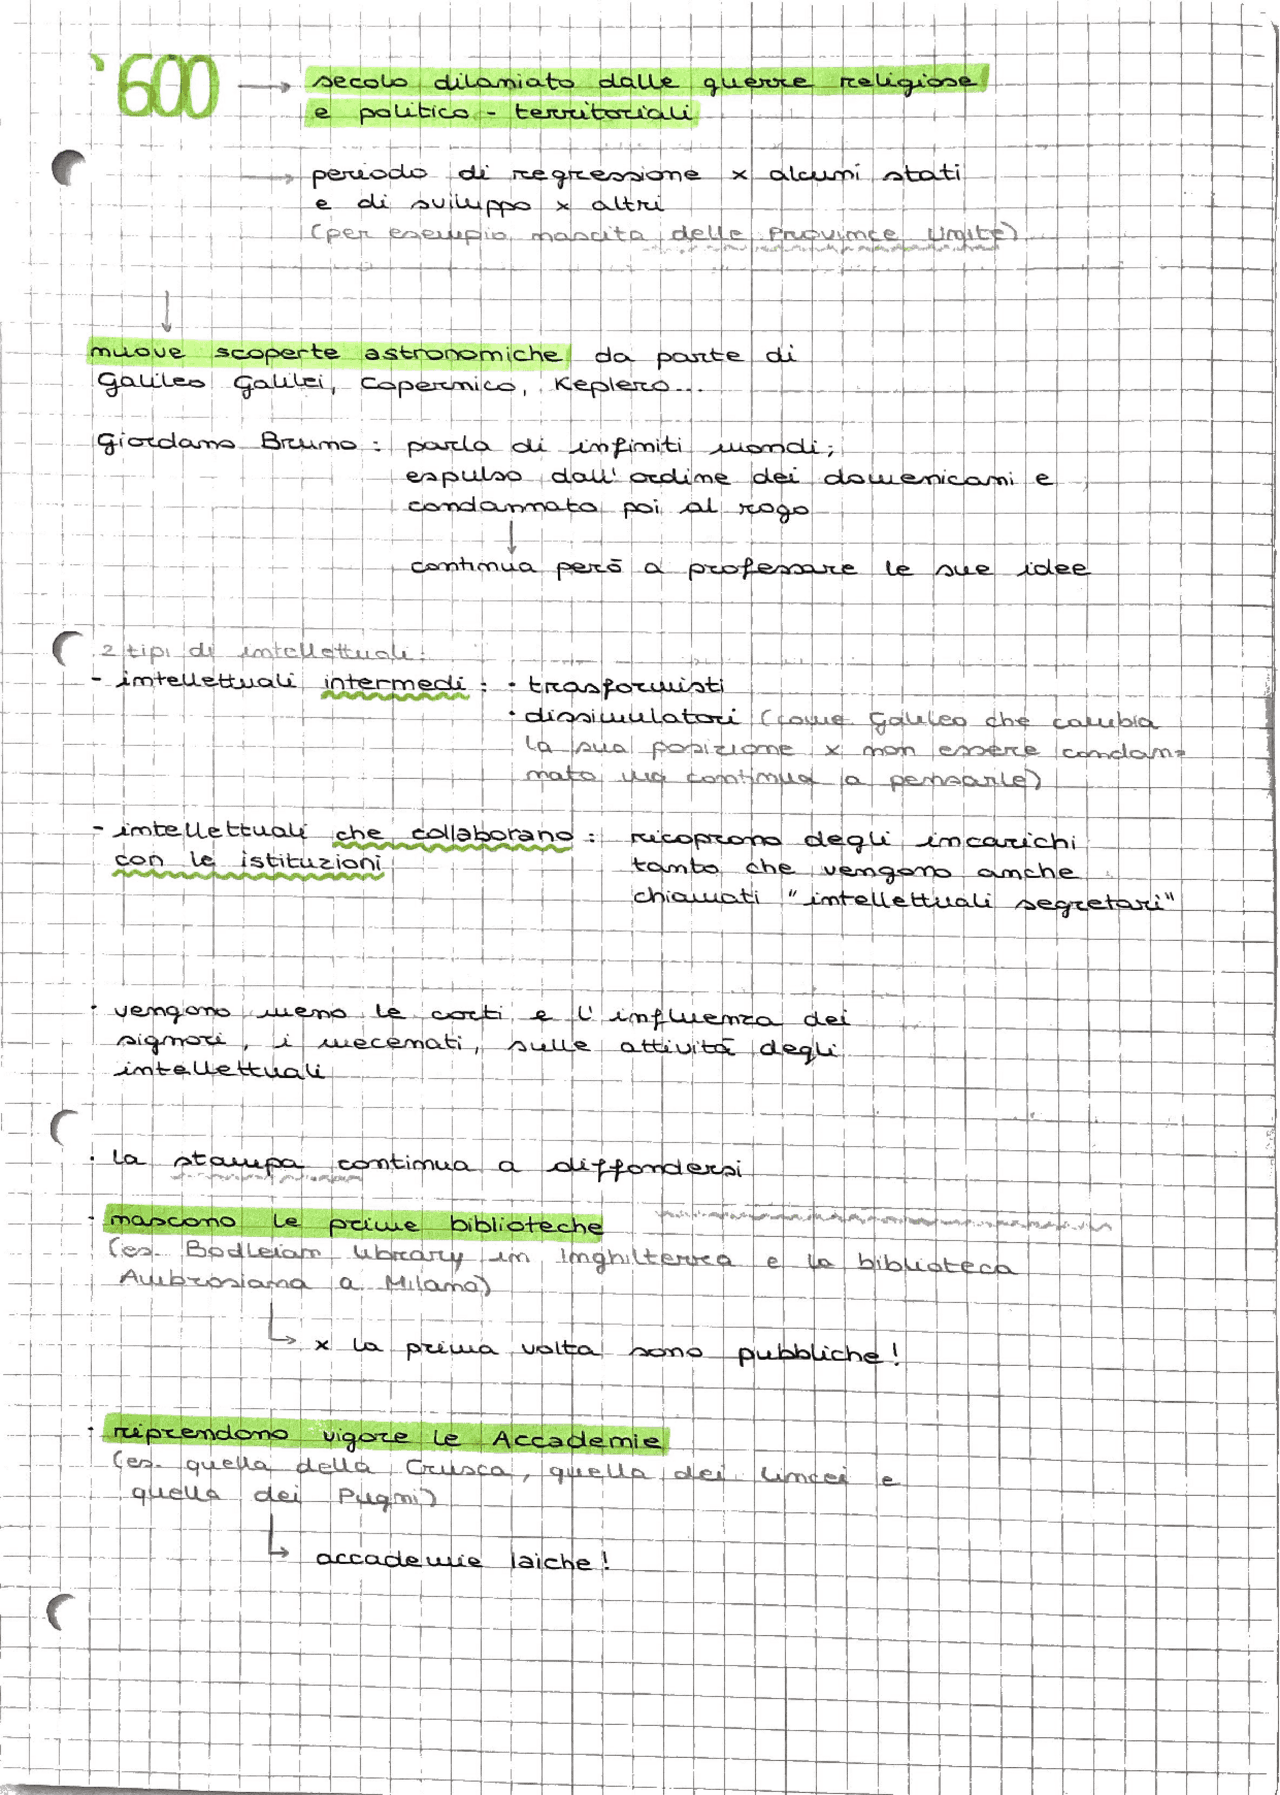 '600 → secolo dilaniato dalle guerre religiose
e politico - territoriali
→ periodo di regressione x alcuni stati
e di sviluppo x altri
(per esempio nascita delle Province Unite)
↓
nuove scoperte astronomiche da parte di
Galileo Galilei, Copernico, Keplero...
Giordano Bruno : parla di infiniti mondi;
espulso dall'ordine dei domenicani e
condannato poi al rogo
↓
continua però a professare le sue idee
2 tipi di intellettuali:
- intellettuali intermedi : · trasformisti
· dissimulatori (come Galileo che cambia
la sua posizione x non essere condan=
nato ma continua a pensarle)
- intellettuali che collaborano : ricoprono degli incarichi
con le istituzioni tanto che vengono anche
chiamati "intellettuali segretari"
· vengono meno le corti e l'influenza dei
signori, i mecenati, sulle attività degli
intellettuali
· la stampa continua a diffondersi
· nascono le prime biblioteche
(es. Bodleian library in Inghilterra e la biblioteca
Ambrosiana a Milano)
↳ x la prima volta sono pubbliche!
· riprendono vigore le Accademie
(es. quella della Crusca, quella dei Lincei e
quella dei Pugni)
↳ accademie laiche!